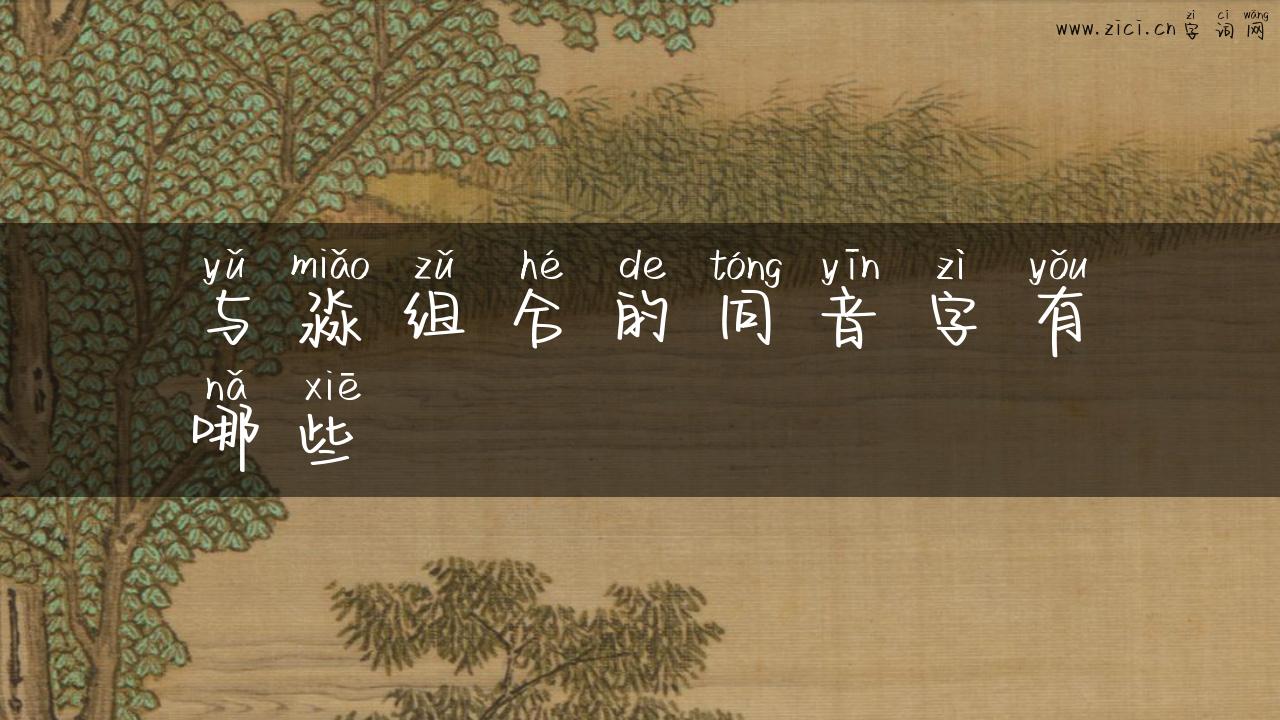 zì cí wǎng
www.zici.cn字词网
yǔ miǎo zǔ hé de tóng yīn zì yǒu
与淼组合的同音字有
nǎ xiē
哪些